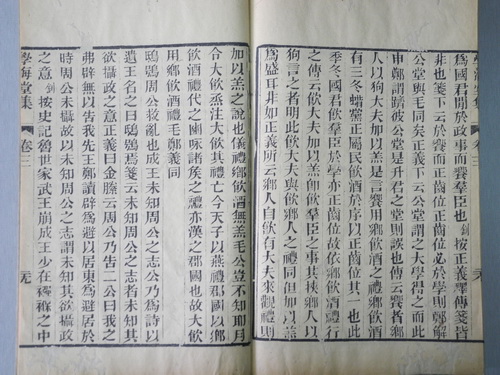 爲國君閒於政事而饗羣臣也釗按正義釋傳箋皆
非也箋下云于饗而正齒位正齒位不必於學則鄭解
公堂與毛不同矣正義下云公堂謂之大學得之而此
申鄭謂躋彼公堂是升君之堂則誤也傳云饗者鄉
人以狗大夫加以羔是言饗用鄉飲酒禮也鄉飲酒禮
有三冬蜡黨正屬民飲酒于序以正齒位其一也此
季冬國君飲羣臣於學亦正齒位故依鄉飲酒禮行
飲羣臣之事其挾鄉人以
狗言之者明大夫與飲鄉人之禮同但加以羔
爲盛耳非如正義所云鄉人自飲有大夫來觀禮則
加以羔之說也儀禮鄉飲酒無羔毛公豈不知耶月
令大飲烝注飲其禮亡今天子以燕禮郡國以鄉
飲酒禮代之豳咏諸侯之禮亦漢之郡國也故大飲
用鄉飲酒禮毛鄭義同
鴟鴞周公救亂也成王未知周公之志公乃爲詩以
遺王名之曰鴟鴞焉箋云未知周公之志者未知其
欲攝政之意正義曰金縢云周公乃告二公曰我之
弗辟無以告我先王鄭讀辟爲避以居東爲避居於
時周公未攝故以未知周公之志謂未知其欲攝政
之意釗按史記魯世家武王崩成王少在襁褓之中
學海堂集 卷三